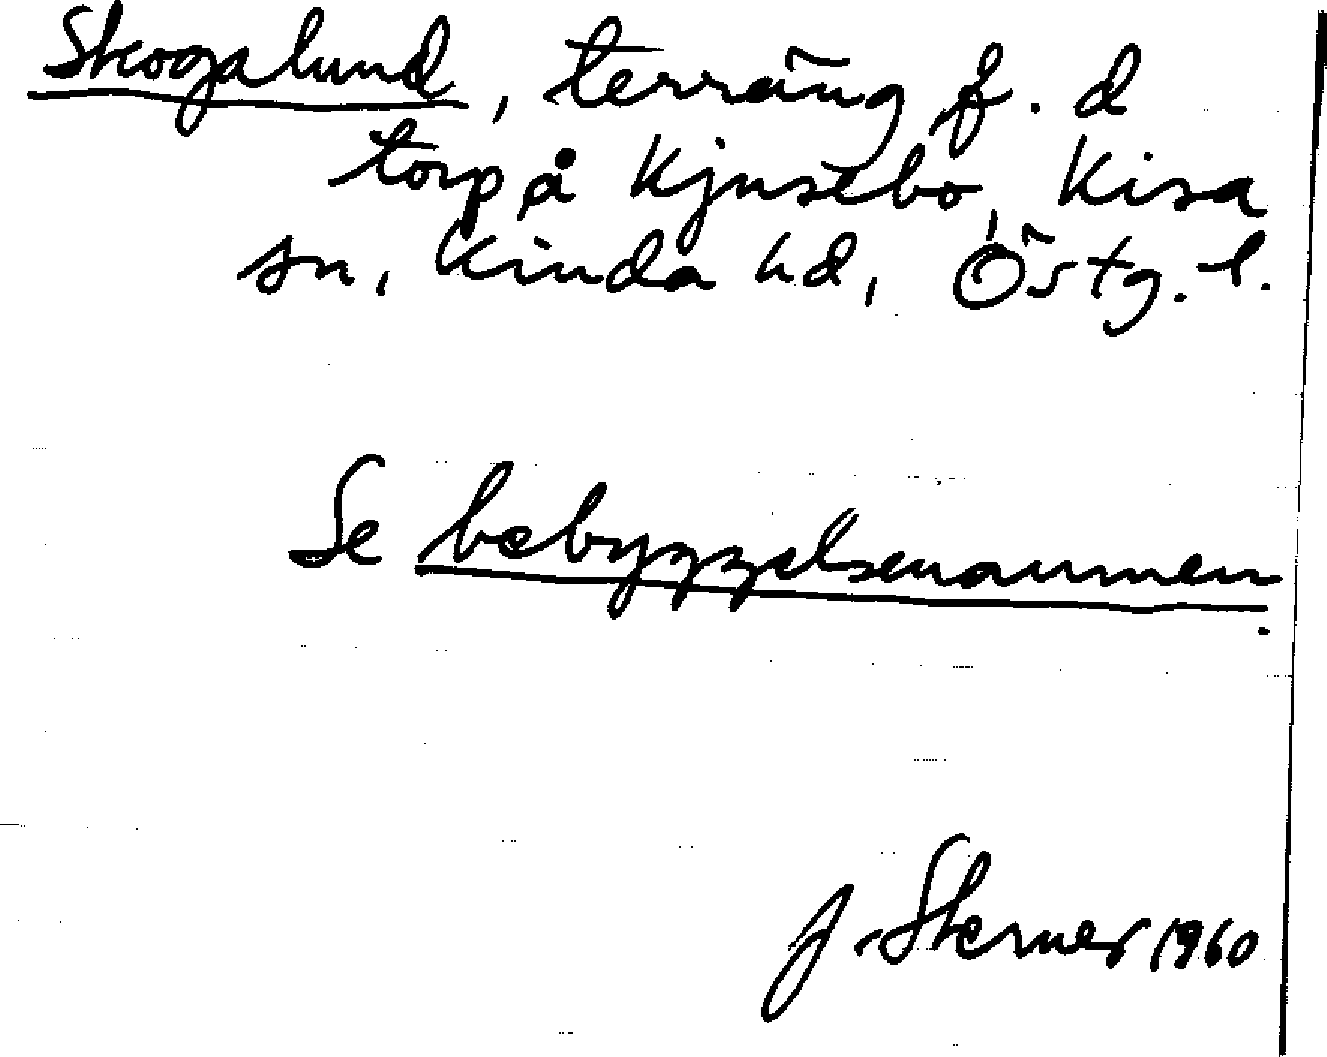 Skogalund, terräng, f. d
torp å Kjusebo, Kisa
sn, Kinda hd, Östg. l.
Se bebyggelsenamnen.
J. Sterner 1960